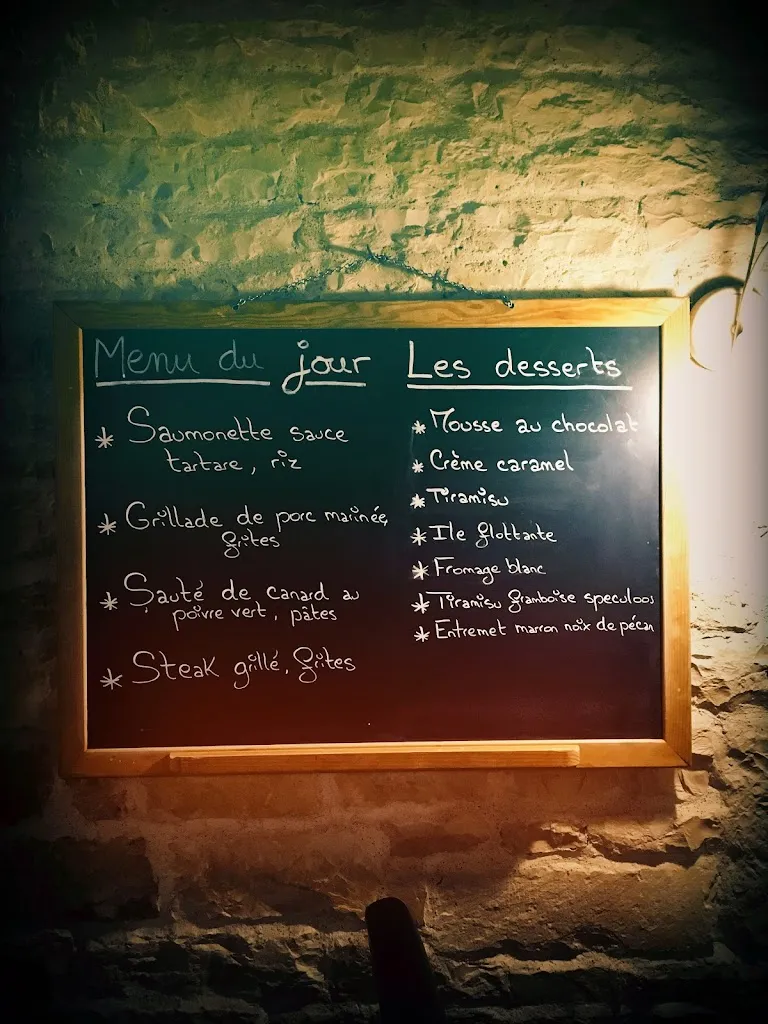 Menu du jour
* Saumonette sauce
tartare, riz
* Grillade de porc marinée,
frites
* Sauté de canard au
poivre vert, pâtes
* Steak grillé, frites
Les desserts
* Mousse au chocolat
* Crème caramel
* Tiramisu
* Ile flottante
* Fromage blanc
* Tiramisu framboise speculoos
* Entremet marron noix de pécan